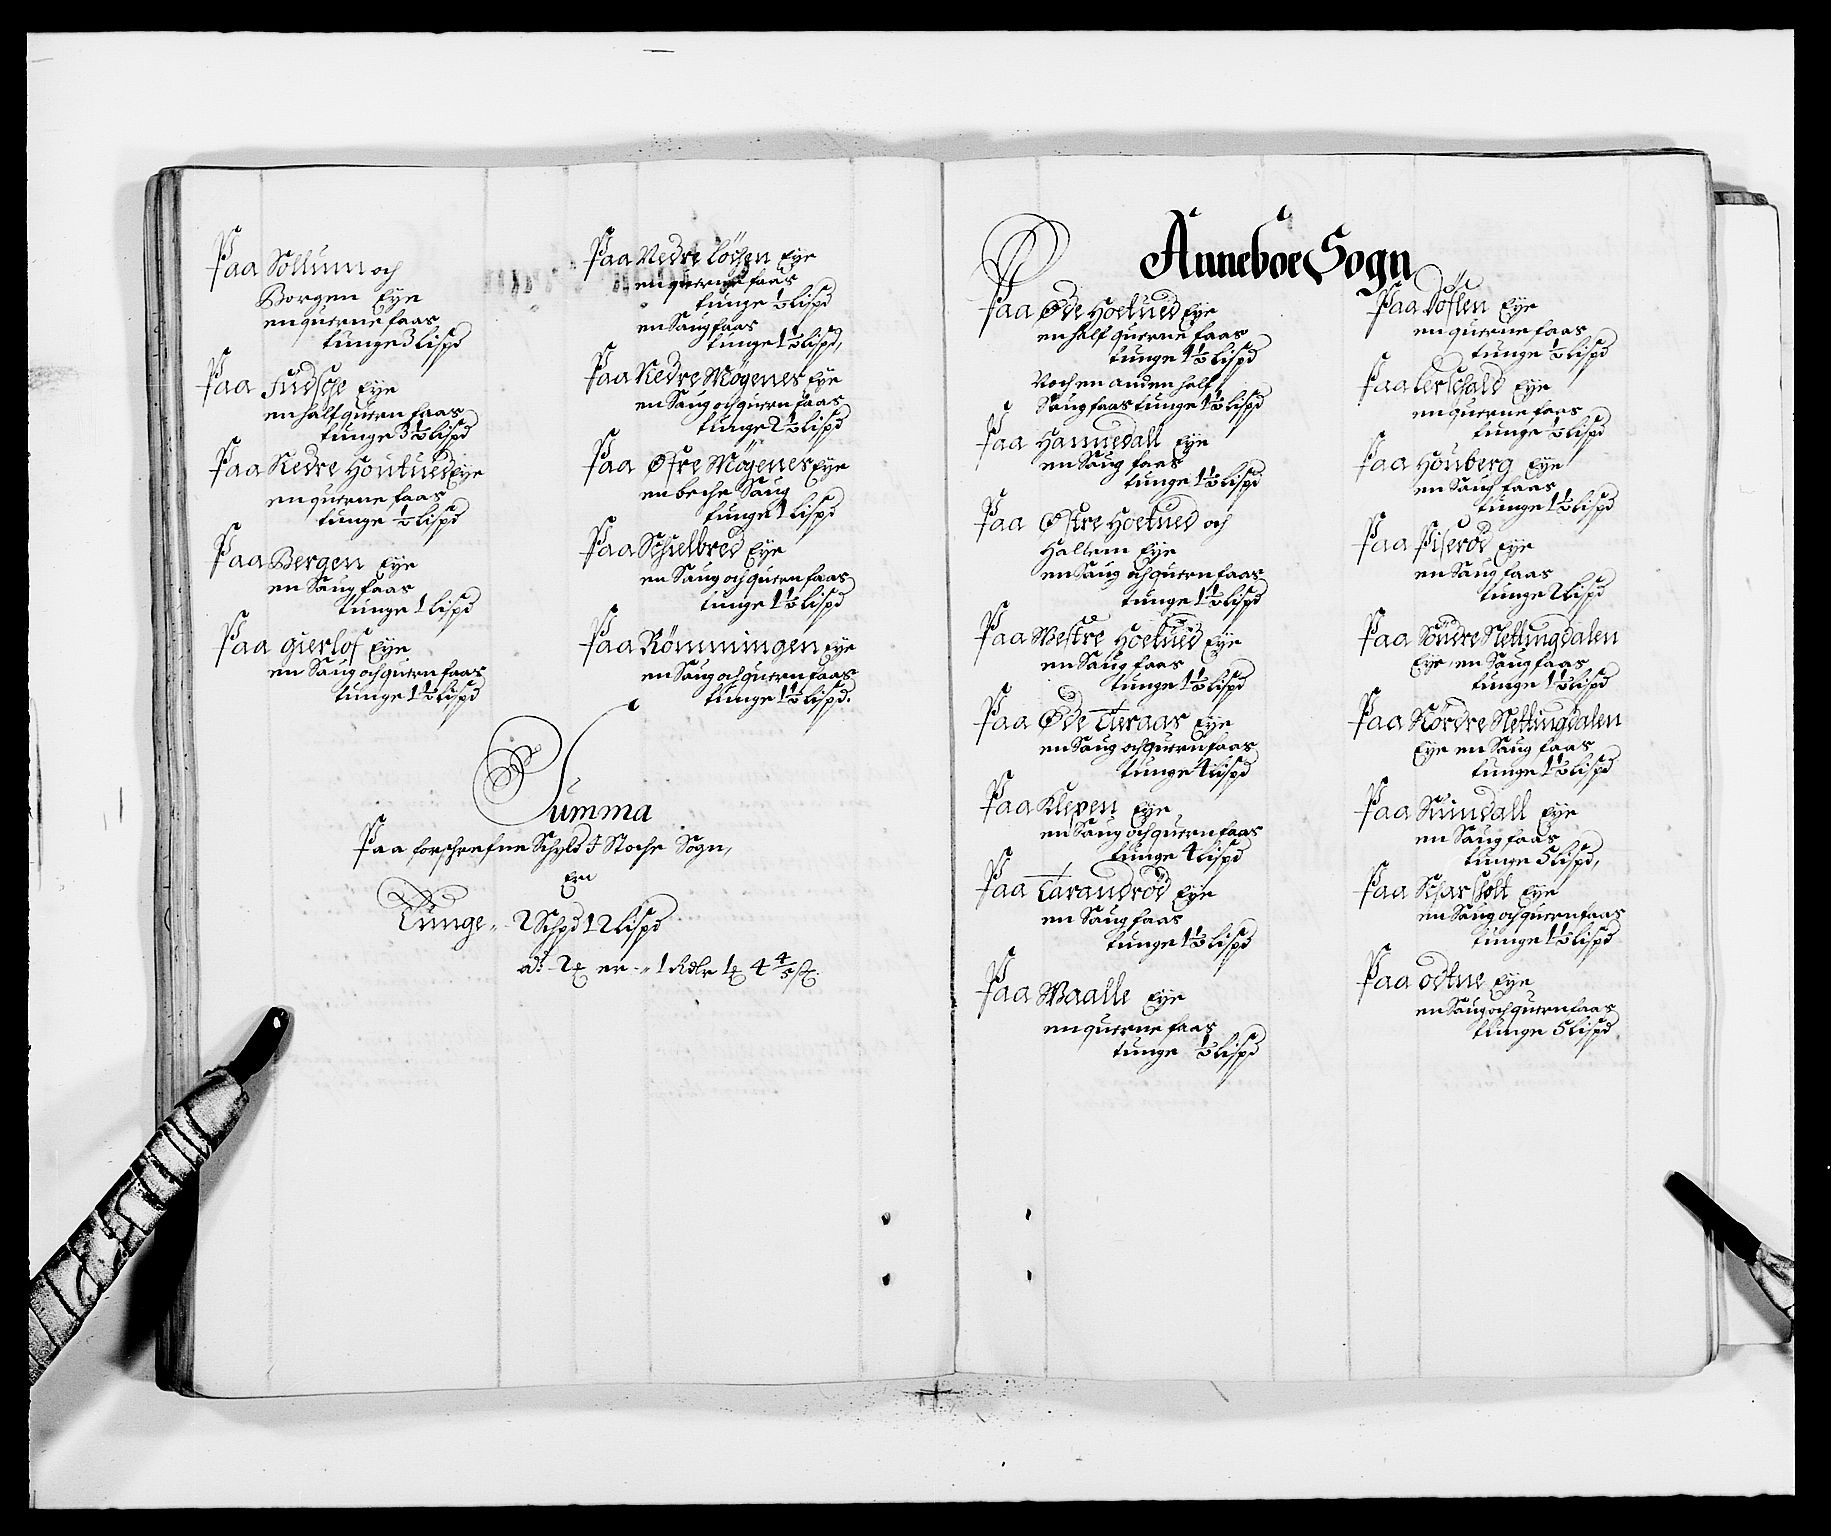 Paa Sollum och
Borgen Eÿe
en querne faas
tunge 3 Lispd
Paa Fudsche Eÿe
en half quern faas
tunge 3½ Lispd
Paa Nedre Houtued Eÿe
en querne faas
tunge ½ Lispd
Paa Bergen Eÿe
en Saug faas
tunge 1 Lispd
Paa gierlof Eÿe
en Saug och quern faas
tunge 1½ Lispd
Paa Nedre Löchen Eÿe
en querne faas
tunge ½ Lispd
en Saug faas
tunge 1½ Lispd,
Paa Nedre Møgenes Eÿe
en Saug och quern faas
tunge 2½ Lispd
Paa Øfre Møgenes Eÿe
en beche Saug
tunge 1 Lispd
Paa Schielbred Eÿe
en Saug och quern faas
tunge 1½ Lispd
Paa Römmingen Eÿe
en Saug och quern faas
tunge 1½ Lispd.
Summa
Paa forschrefne Schyld I Stoche Sogn,
Em
Tunge „ 2 Schpd 12 Lispd
er „ 1 Rdlr 1 4 4/5
Anneboe Sogn
Paa Øde Hoetued Eÿe
en half querne faas
tunge 1½ Lispd
Noch en anden half
Saug faas tunge 1½ Lispd
Paa Hannedall Eÿe
en Saug faas
tunge 1½ Lispd
Paa Østre Hoetued och
Hallem Eÿe
en Saug och quern faas
tunge 1½ Lispd
Paa Westre Hoetued Eÿe
en Saug faas
tunge 1½ Lispd
Paa Øde Tieraas Eÿe
en Saug och quern faas
tunge 4 Lispd
Paa Kleven Eÿe
en Saug och quern faas
tunge 4 Lispd
Paa Tarandröd Eÿe
en Saug faas
tunge 1½ Lispd
Paa Waalle Eÿe
en querne faas
tunge ½ Lispd
Paa Löflen Eÿe
en querne faas
tunge ½ Lispd
Paa Lerschald Eÿe
en querne faas
tunge ½ Lispd
Paa Houberg Eÿe
en Saug faas
tunge 1½ Lispd
Paa Piseröd Eÿe
en Saug faas
tunge 2 Lispd
Paa Söndre Nettingdalen
Eÿe en Saug faas
tunge 1½ Lispd
Paa Nördre Nettingdalen
Eÿe en Saug faas
tunge 1½ Lispd
Paa Sundall Eÿe
en Saug faas
tunge 5 Lispd,
Paa Scharsholt Eÿe
en Saug och quern faas
tunge 1½ Lispd
Paa odtne Eÿe
en Saug och quern faas
tunge 5 Lispd